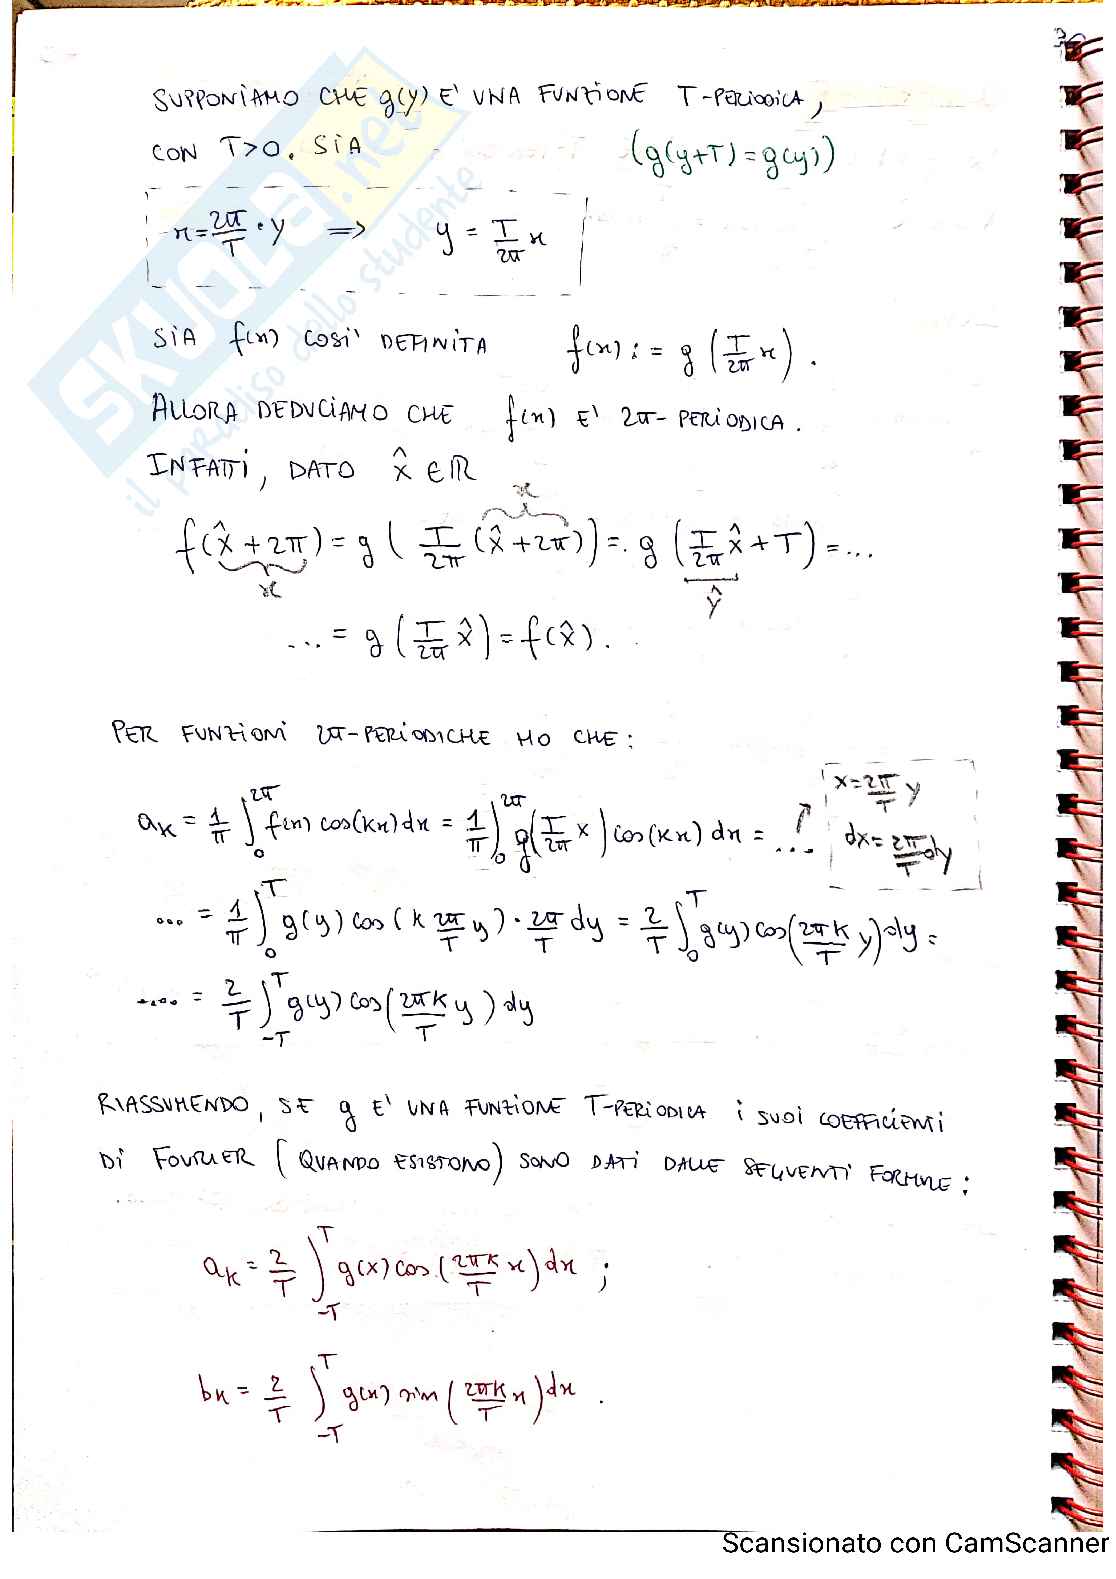 30
SUPPONIAMO CHE g(y) E' UNA FUNZIONE T-PERIODICA,
CON T>0. SIA (g(y+T)=g(y))
x = 2π/T · y ⟹ y = T/2π x
SIA f(x) COSI' DEFINITA f(x) := g(T/2π x).
ALLORA DEDUCIAMO CHE f(x) E' 2π-PERIODICA.
INFATTI, DATO x̂ ∈ ℝ
x
f(x̂+2π) = g(T/2π (x̂+2π)) = g(T/2π x̂ + T) = ...
x ŷ
... = g(T/2π x̂) = f(x̂).
PER FUNZIONI 2π-PERIODICHE HO CHE:
x = 2π/T y
aₖ = 1/π ∫₀^2π f(x) cos(kx) dx = 1/π ∫₀^2π g(T/2π x) cos(kx) dx = ...
dx = 2π/T dy
... = 1/π ∫₀^T g(y) cos(k 2π/T y) · 2π/T dy = 2/T ∫₀^T g(y) cos(2πk/T y) dy =
.... = 2/T ∫_-T^T g(y) cos(2πk/T y) dy
RIASSUMENDO, SE g E' UNA FUNZIONE T-PERIODICA i SUOI COEFFICIENTI
DI FOURIER (QUANDO ESISTONO) SONO DATI DALLE SEGUENTI FORMULE:
aₖ = 2/T ∫_-T^T g(x) cos(2πk/T x) dx ;
bₖ = 2/T ∫_-T^T g(x) sin(2πk/T x) dx .
SKUOLA.net
il paradiso dello studente
Scansionato con CamScanner